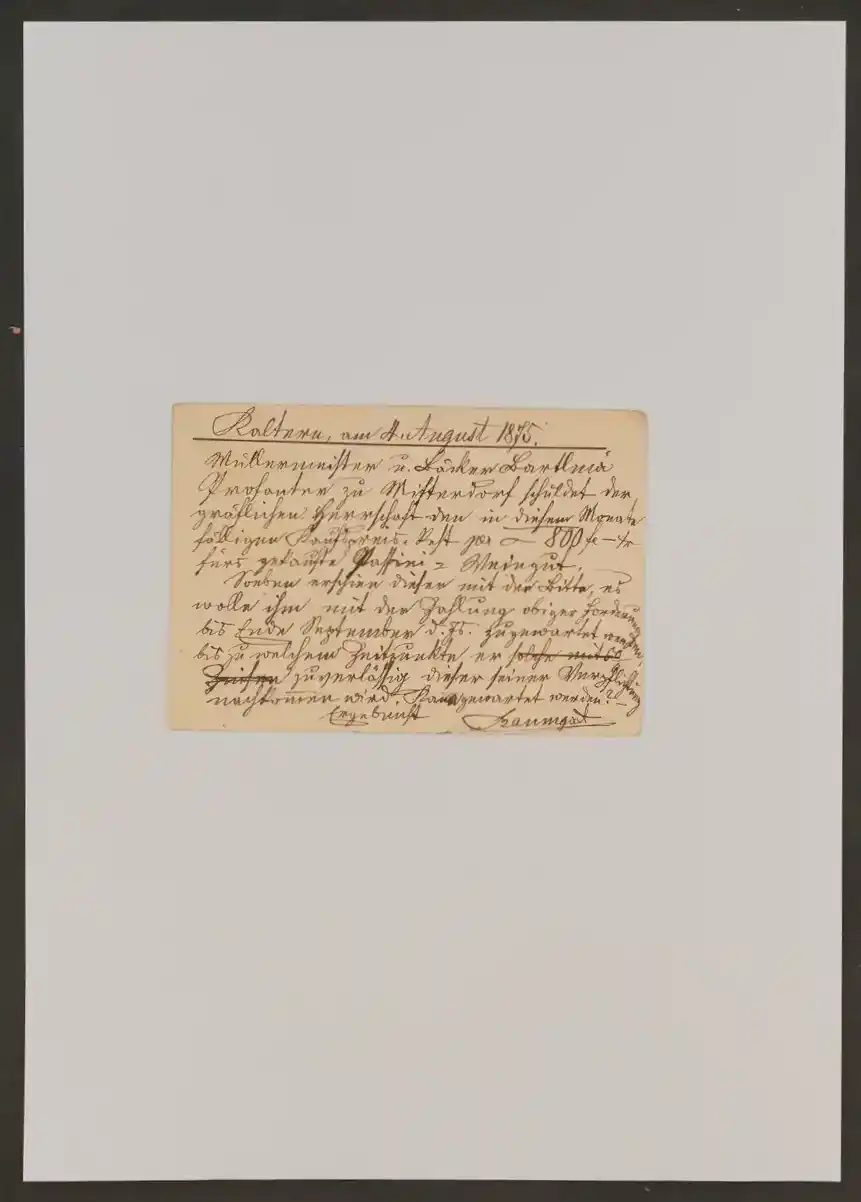 Kaltern, am 4. August 1875.
Müllermeister u. Bäcker Bartlmä
Profanter zu Mitterdorf schuldet der
gräflichen Herrschaft den in diesem Monate
fälligen Kaufpreis-Rest per 800 fl – kr
fürs gekaufte Passini-Weingut.
Soeben erschien dieser mit der Bitte, es
wolle ihm mit der Zahlung obiger Forderung
bis Ende September d. Js. zugewartet werden,
bis zu welchem Zeitpunkte er solche mit
Zinsen zuverlässig dieser seiner Verpflichtung
nachkommen wird. Kann gewartet werden?
Ergebenst